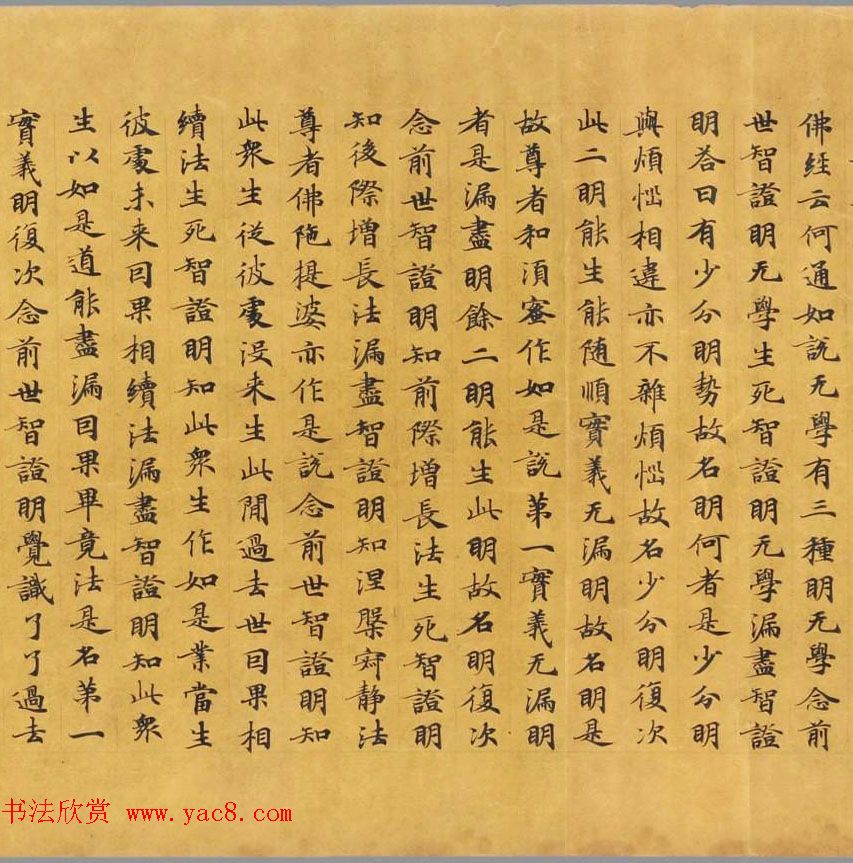 佛経云何通如説无學有三種明无學念前
世智證明无學生死智證明无學漏盡智證
明荅曰有少分明勢故名明何者是少分明
與煩惱相違亦不雜煩惱故名少分明復次
此二明能生能随順實義无漏明故名明是
故尊者和湏蜜作如是説第一實義无漏明
者是漏盡明餘二明能生此明故名明復次
念前世智證明知前際增長法生死智證明
知後際增長法漏盡智證明知涅槃寂静法
尊者佛陁提婆亦作是説念前世智證明知
此衆生從彼處没来生此間過去世因果相
續法生死智證明知此衆生作如是業當生
彼處未来因果相續法漏盡智證明知此衆
生以如是道能盡漏因果畢竟法是名第一
實義明復次念前世智證明覺識了了過去
书法欣赏 www.yac8.com